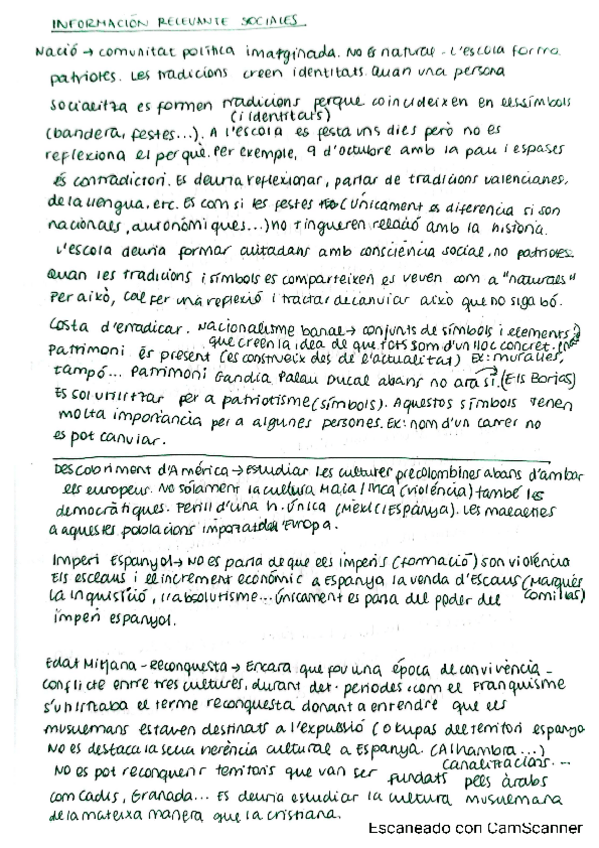 INFORMACIÓN RELEVANTE SOCIALES.
Nació → comunitat política imatginada. No és natural - L'escola forma
patriotes. Les tradicions creen identitats. Quan una persona
socialitza es formen tradicions perque coincideixen en els símbols
(i identitats)
(bandera, festes...). A l'escola es festa uns dies però no es
reflexiona el per què. Per exemple, 9 d'octubre amb la pau i espases
és contradictori. Es deuria reflexionar, parlar de tradicions valencianes,
de la llengua, etc. Es com si les festes (únicament es diferencia si son
nacionals, autonómiques...) no tingueren relació amb la historia.
L'escola deuria formar ciutadans amb consciència social, no patriotes.
Quan les tradicions i símbols es comparteixen es veven com a "naturals"
Per això, cal fer una reflexió i tractar de canviar això que no siga bó.
Costa d'erradicar. Nacionalisme banal → conjunts de símbols i elements
que creen la idea de que tots som d'un lloc concret.
Patrimoni és present (es construeix des de l'actualitat) Ex: muralles,
tampó... Patrimoni Gandia Palau Ducal abans no ara sí. (Els Borjas)
Es sol utilitzar per a patriotisme (símbols). Aquestos símbols tenen
molta importància per a algunes persones. Ex: nom d'un carrer no
es pot canviar.
Descobriment d'Amèrica → Estudiar les cultures precolombines abans d'ambar
els europeus. No sólament la cultura Maia / Inca (violència) també les
democràtiques. Perill d'una h. única (Mèxic / Espanya). Les malalties
a aquestes poblacions Europa.
Imperi Espanyol → No es parla de que els imperis (formació) son violència
Els esclaus i el increment econòmic a Espanya la venda d'esclaus (Marqués
La Inquisició, l'absolutisme... únicament es parla del poder del Comillas)
imperi espanyol.
Edat Mitjana - Reconquesta → Encara que fou una época de convivència -
conflicte entre tres cultures, durant det. periodes com el Franquisme
s'utilitzaba el terme reconquesta donant a entendre que els
musulmans estaven destinats a l'expulsió (okupas del territori espanyo
No es destaca la seua herència cultural a Espanya. (Alhambra...)
canalitzacions...
No es pot reconquerir territoris que van ser fundats pels àrabs
com Cadis, Granada... Es deuria estudiar la cultura musulmana
de la mateixa manera que la cristiana.
Escaneado con CamScanner